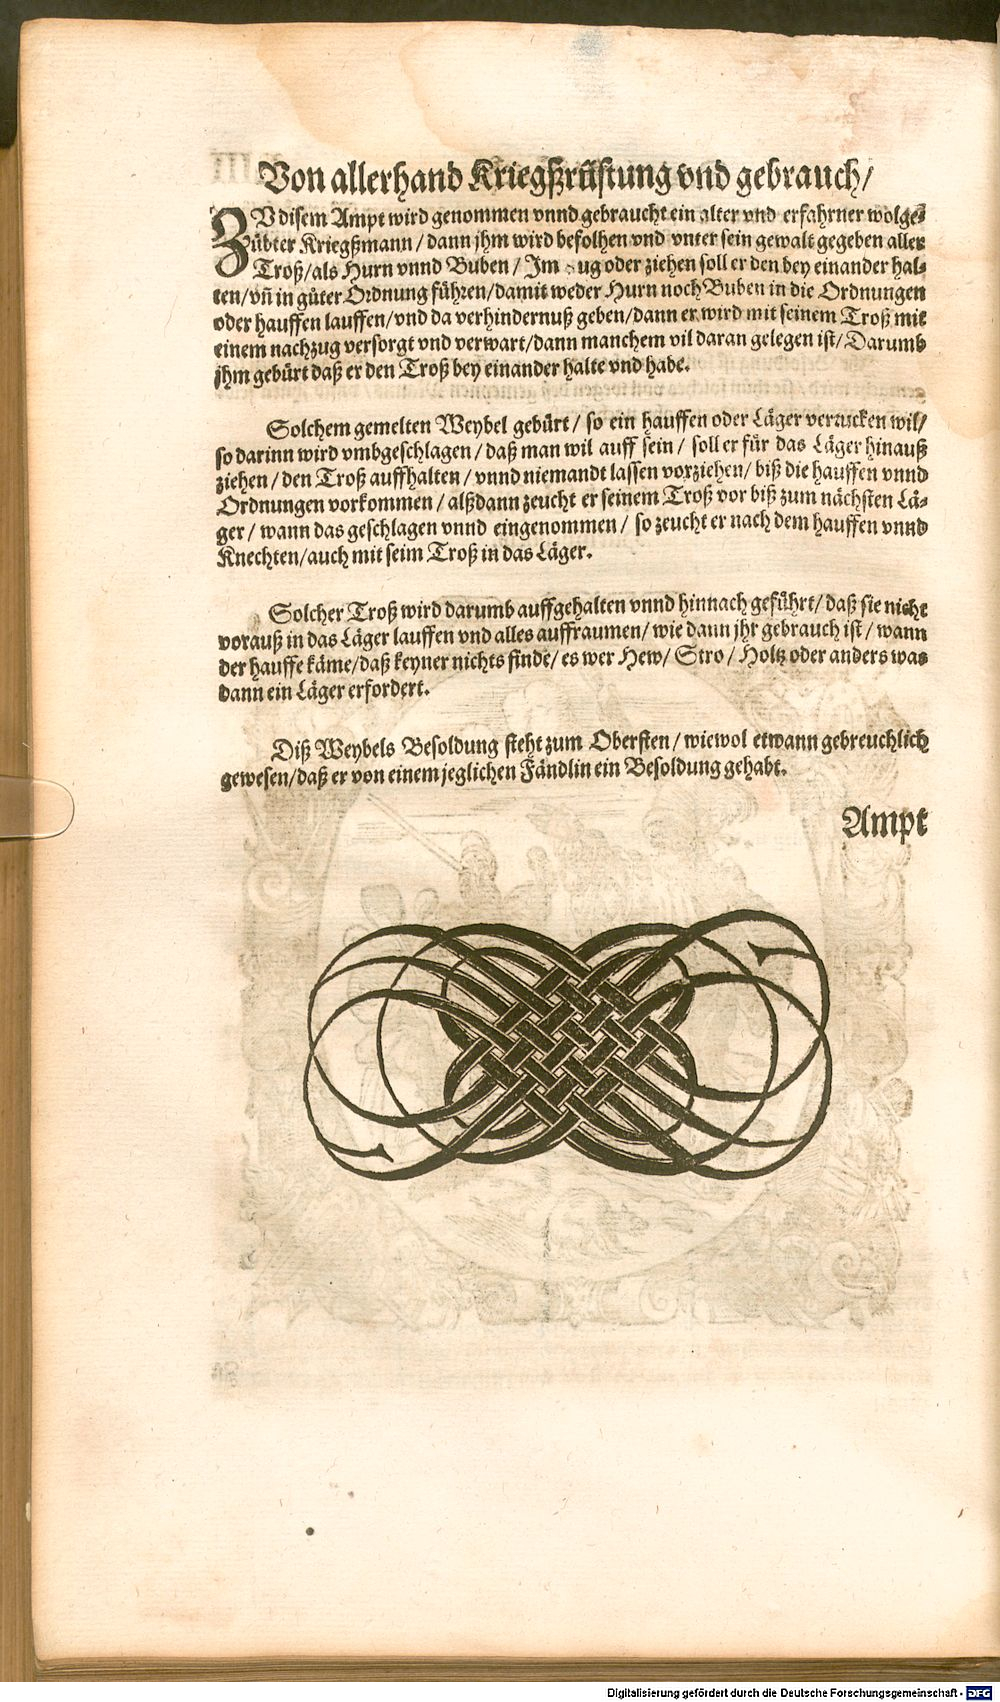 Von allerhand Kriegßrüstung vnd gebrauch/
ZV disem Ampt wird genommen vnnd gebraucht ein alter vnd erfahrner wolge-
übter Kriegßmann/dann jhm wird befolhen vnd vnter sein gewalt gegeben aller
Troß/als Hurn vnnd Buben/Im ug oder ziehen soll er den bey einander hal-
ten/vn̄ in gůter Ordnung führen/damit weder Hurn noch Buben in die Ordnungen
oder hauffen lauffen/vnd da verhindernuß geben/dann er wird mit seinem Troß mit
einem nachzug versorgt vnd verwart/dann manchem vil daran gelegen ist/Darumb
jhm gebürt daß er den Troß bey einander halte vnd habe.
Solchem gemelten Weybel gebürt/so ein hauffen oder Läger verrucken wil/
so darinn wird vmbgeschlagen/daß man wil auff sein/soll er für das Läger hinauß
ziehen/den Troß auffhalten/vnnd niemandt lassen vorziehen/biß die hauffen vnnd
Ordnungen vorkommen/alßdann zeucht er seinem Troß vor biß zum nächsten Lä-
ger/wann das geschlagen vnnd eingenommen/so zeucht er nach dem hauffen vnnd
Knechten/auch mit seim Troß in das Läger.
Solcher Troß wird darumb auffgehalten vnnd hinnach geführt/daß sie nicht
vorauß in das Läger lauffen vnd alles auffraumen/wie dann jhr gebrauch ist/wann
der hauffe käme/daß keyner nichts finde/es wer Hew/Stro/Holtz oder anders was
dann ein Läger erfordert.
Diß Weybels Besoldung steht zum Obersten/wiewol etwann gebreuchlich
gewesen/daß er von einem jeglichen Fändlin ein Besoldung gehabt.
Ampt
Digitalisierung gefördert durch die Deutsche Forschungsgemeinschaft - DFG